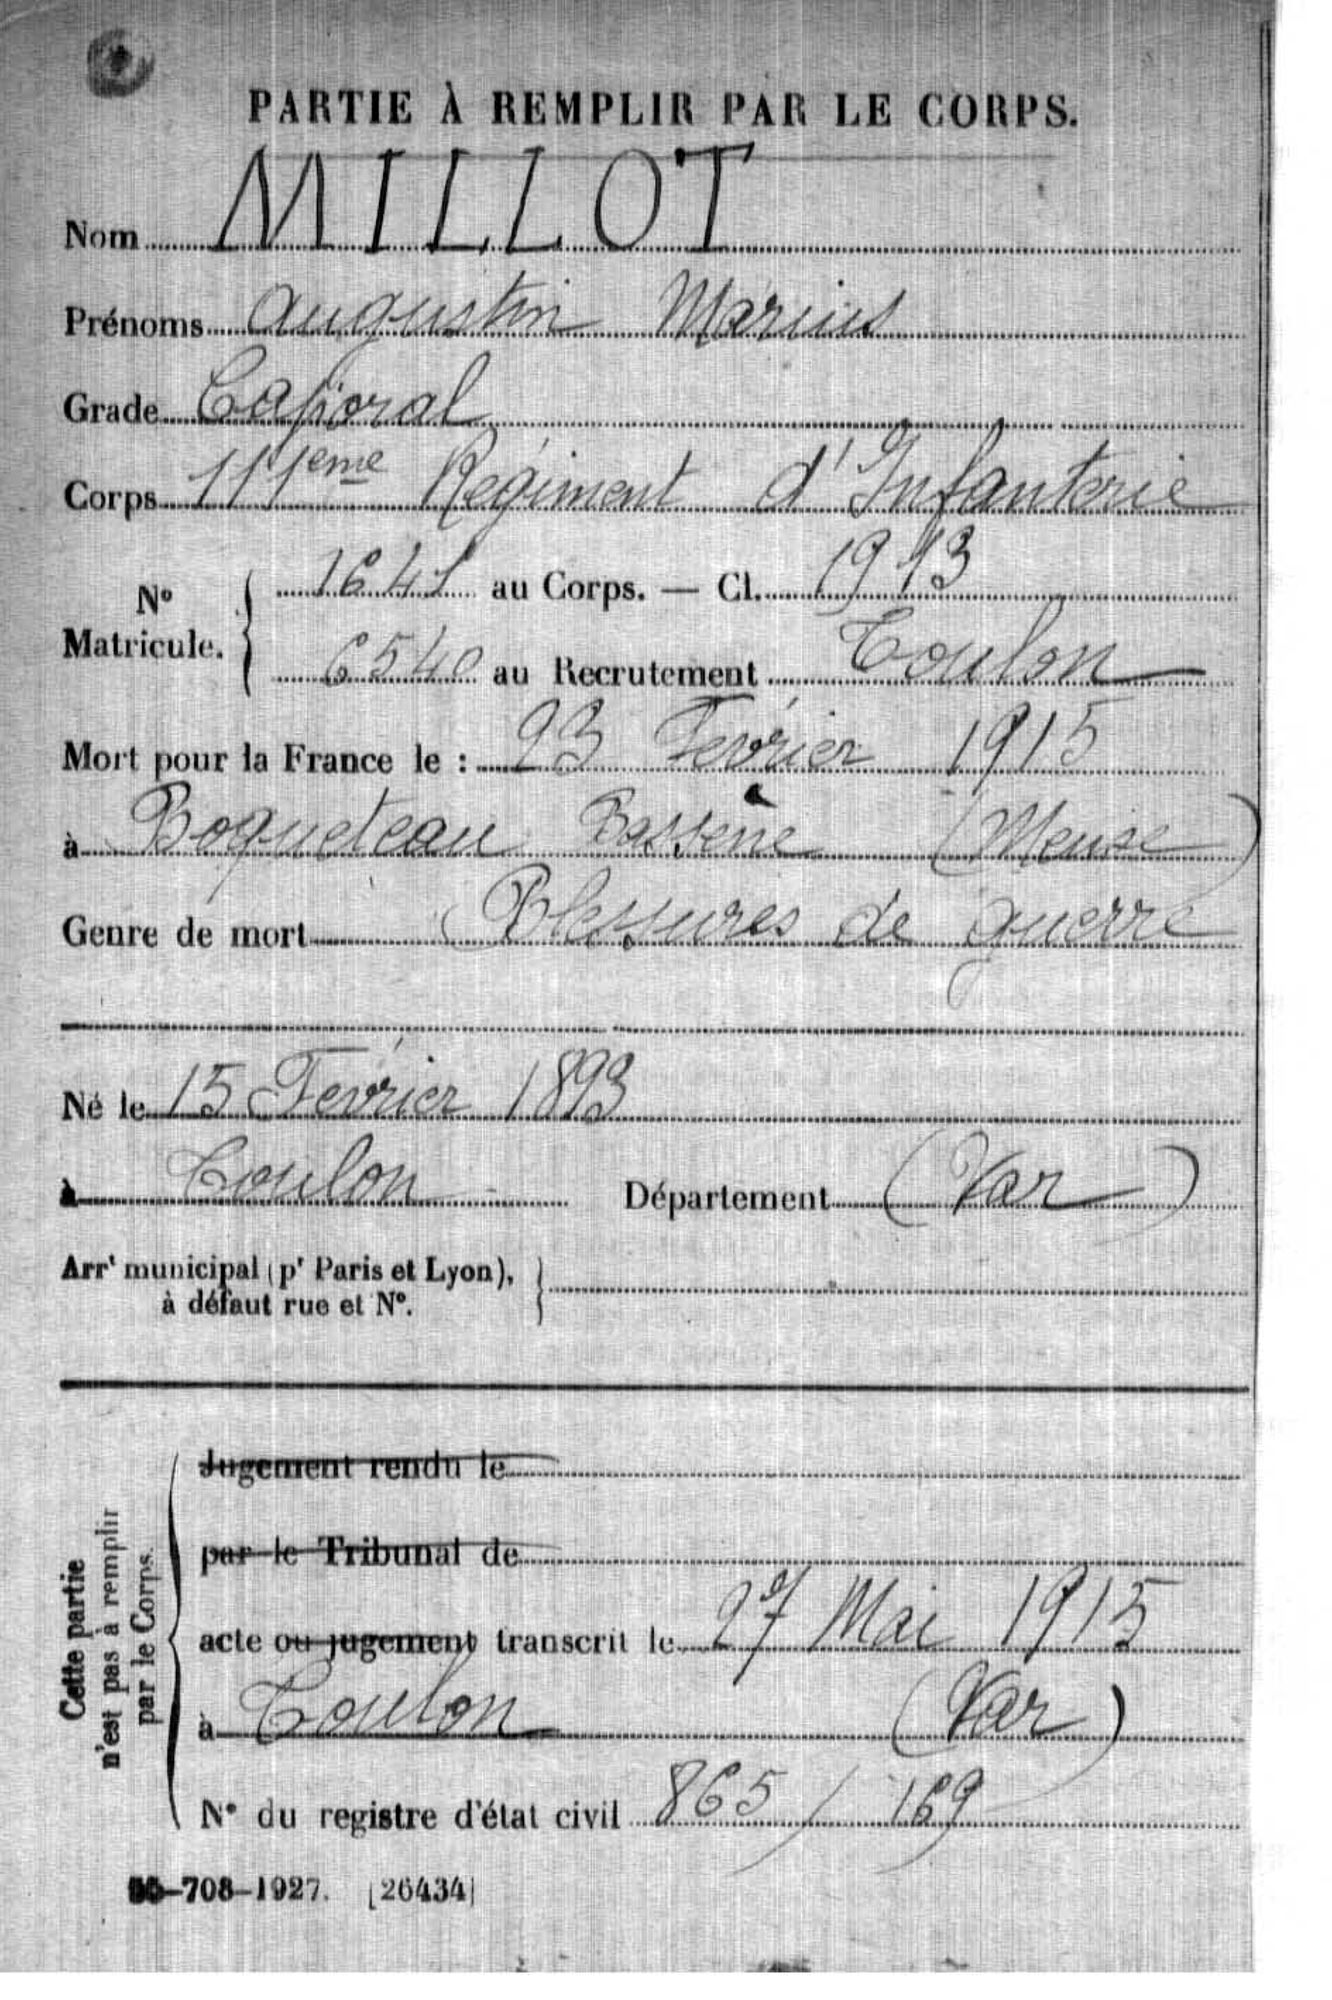 PARTIE À REMPLIR PAR LE CORPS.
Nom MILLOT
Prénoms Augustin Marius
Grade Caporal
Corps 111eme Régiment d'Infanterie
No Matricule. { 1641 au Corps. — Cl. 1913
6540 au Recrutement Toulon
Mort pour la France le : 23 Février 1915
à Boqueteau (Meuse)
Genre de mort Blessures de guerre
Né le 15 Février 1893
à Toulon Département (Var)
Arrt municipal (pr Paris et Lyon), }
à défaut rue et No.
Cette partie
n'est pas à remplir
par le Corps.
Jugement rendu le
par le Tribunal de
acte ou jugement transcrit le 27 Mai 1915
à Toulon (Var)
No du registre d'état civil 865 / 169
-708-1927. [26434]